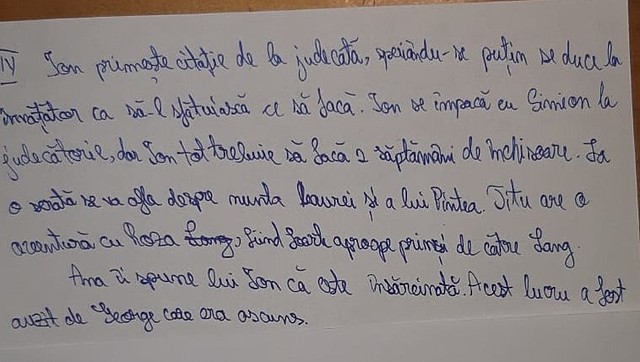 IV Ion primește citație de la judecată, speriându-se puțin se duce la
învățător ca să-l sfătuiască ce să facă. Ion se împacă cu Simion la
judecătorie, dar Ion tot trebuie să facă 2 săptămâni de închisoare. La
o serată se va afla despre nunta Laurei și a lui Pintea. Titu are o
aventură cu Roza Lang, fiind foarte aproape prinși de către Lang.
Ana îi spune lui Ion că este însărcinată. Acest lucru a fost
auzit de George care era ascuns.